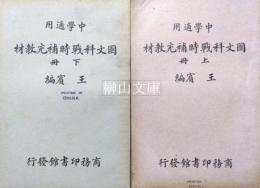 用適學中
材教充補時戰科文國
冊下
編賓王
PRINTED IN
CHINA
行發館書印務商
用適學中
材教充補時戰科文國
冊上
編賓王
行發館書印務商
榊山文庫